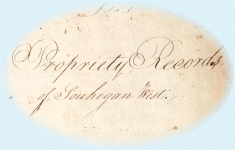 Propriety Records
of Souhegan West.